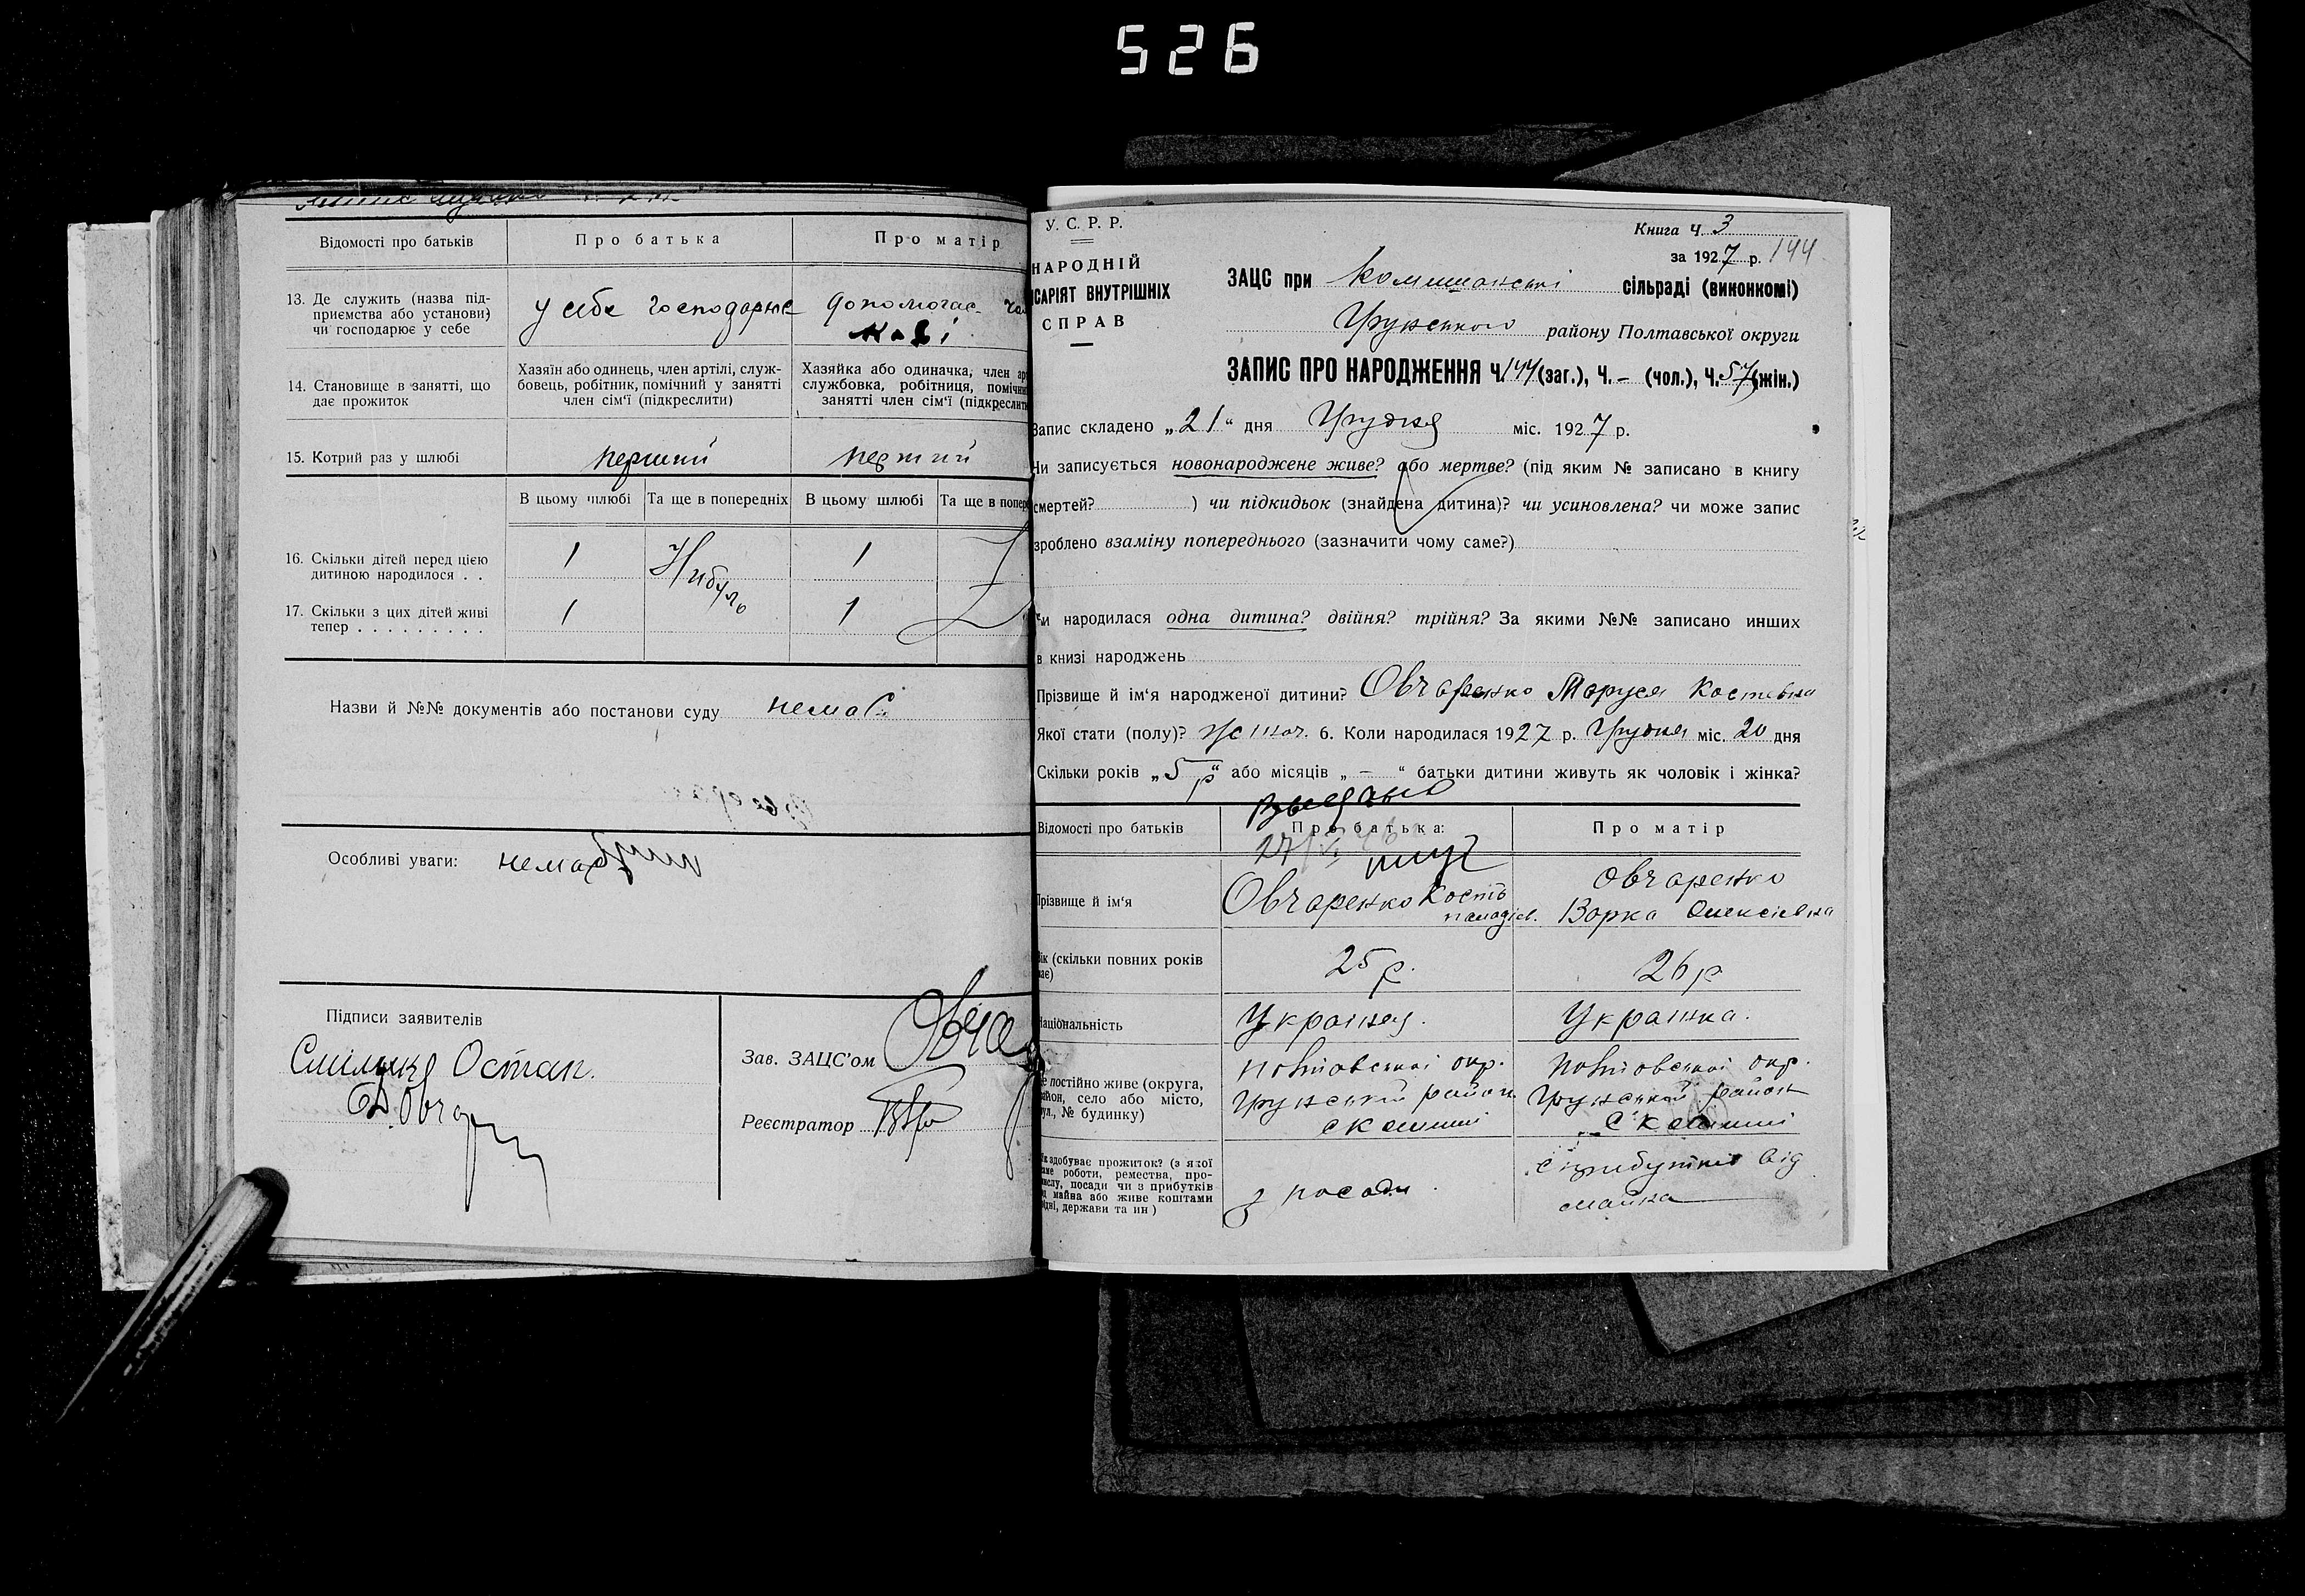 526
Відомості про батьків
Про батька
Про матір
13. Де служить (назва під-
приємства або установи)
чи господарює у себе
у себе господарює
допомогає
14. Становище в занятті, що
дає прожиток
Хазяїн або одинець, член артілі, служ-
бовець, робітник, помічний у занятті
член сім'ї (підкреслити)
Хазяйка або одиначка, член
службовка, робітниця,
занятті член сім'ї
15. Котрий раз у шлюбі
перший
перший
В цьому шлюбі
Та ще в попередніх
В цьому шлюбі
Та ще в
16. Скільки дітей перед цією
дитиною народилося . .
1
1
17. Скільки з цих дітей живі
тепер . . . . . . . . .
1
1
Назви й №№ документів або постанови суду немає
Особливі уваги: немає
Підписи заявителів
Остап.
Зав. ЗАЦС'ом
Реєстратор
У. С. Р. Р.
НАРОДНІЙ
ВНУТРІШНІХ
СПРАВ
Книга ч. 3
за 1927 р. 144
ЗАЦС при Комишанські сільраді (виконкомі)
Грунського району Полтавської округи
ЗАПИС ПРО НАРОДЖЕННЯ Ч. 144 (заг.), Ч. - (чол.), Ч. 57 (жін.)
Запис складено „21“ дня Грудня міс. 1927 р.
Чи записується новонароджене живе? або мертве? (під яким № записано в книгу
смертей? ) чи підкидьок (знайдена дитина)? чи усиновлена? чи може запис
зроблено взаміну попереднього (зазначити чому саме?)
Чи народилася одна дитина? двійня? трійня? За якими №№ записано инших
в книзі народжень
Прізвище й ім'я народженої дитини? Овчаренко Маруся Костівна
Якої стати (полу)? жіноч. 6. Коли народилася 1927 р. Грудня міс. 20 дня
Скільки років „5 р“ або місяців „ - “ батьки дитини живуть як чоловік і жінка?
Відомості про батьків
Про батька:
Про матір
Прізвище й ім'я
Овчаренко Кость
Овчаренко
Ворка Олексієвна
(скільки повних років
25 р.
26 р
Національність
Українец.
Українка.
постійно живе (округа,
район, село або місто,
вул., № будинку)
Полтавської окр.
Грунський район
с Комиші
Полтовської окр.
Грунський район
с Комиші
здобуває прожиток? (з якої
саме роботи, ремества, про-
мислу, посади чи з прибутків
майна або живе коштами
держави та ин)
з посади
с прибутків від
майна